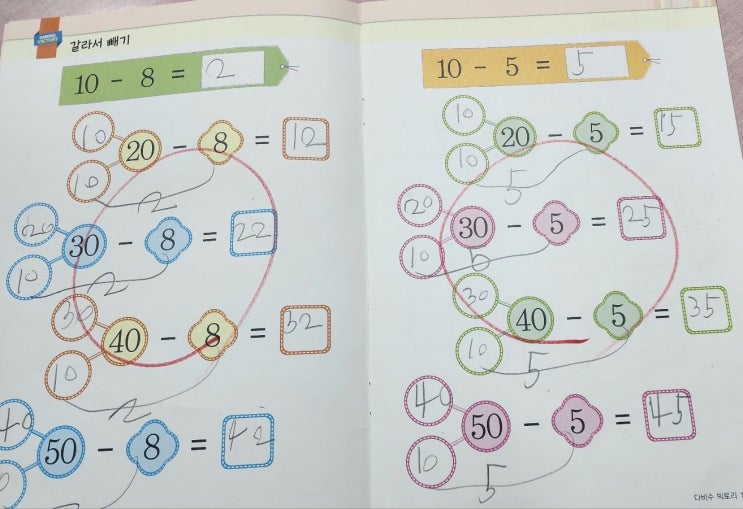 갈라서 빼기
10 - 8 = 2
10
20 - 8 = 12
10
2
20
30 - 8 = 22
10
2
30
40 - 8 = 32
10
2
40
50 - 8 = 42
10 - 5 = 5
10
20 - 5 = 15
10
5
20
30 - 5 = 25
10
5
30
40 - 5 = 35
10
5
40
50 - 5 = 45
10
5
다비수 빅토리